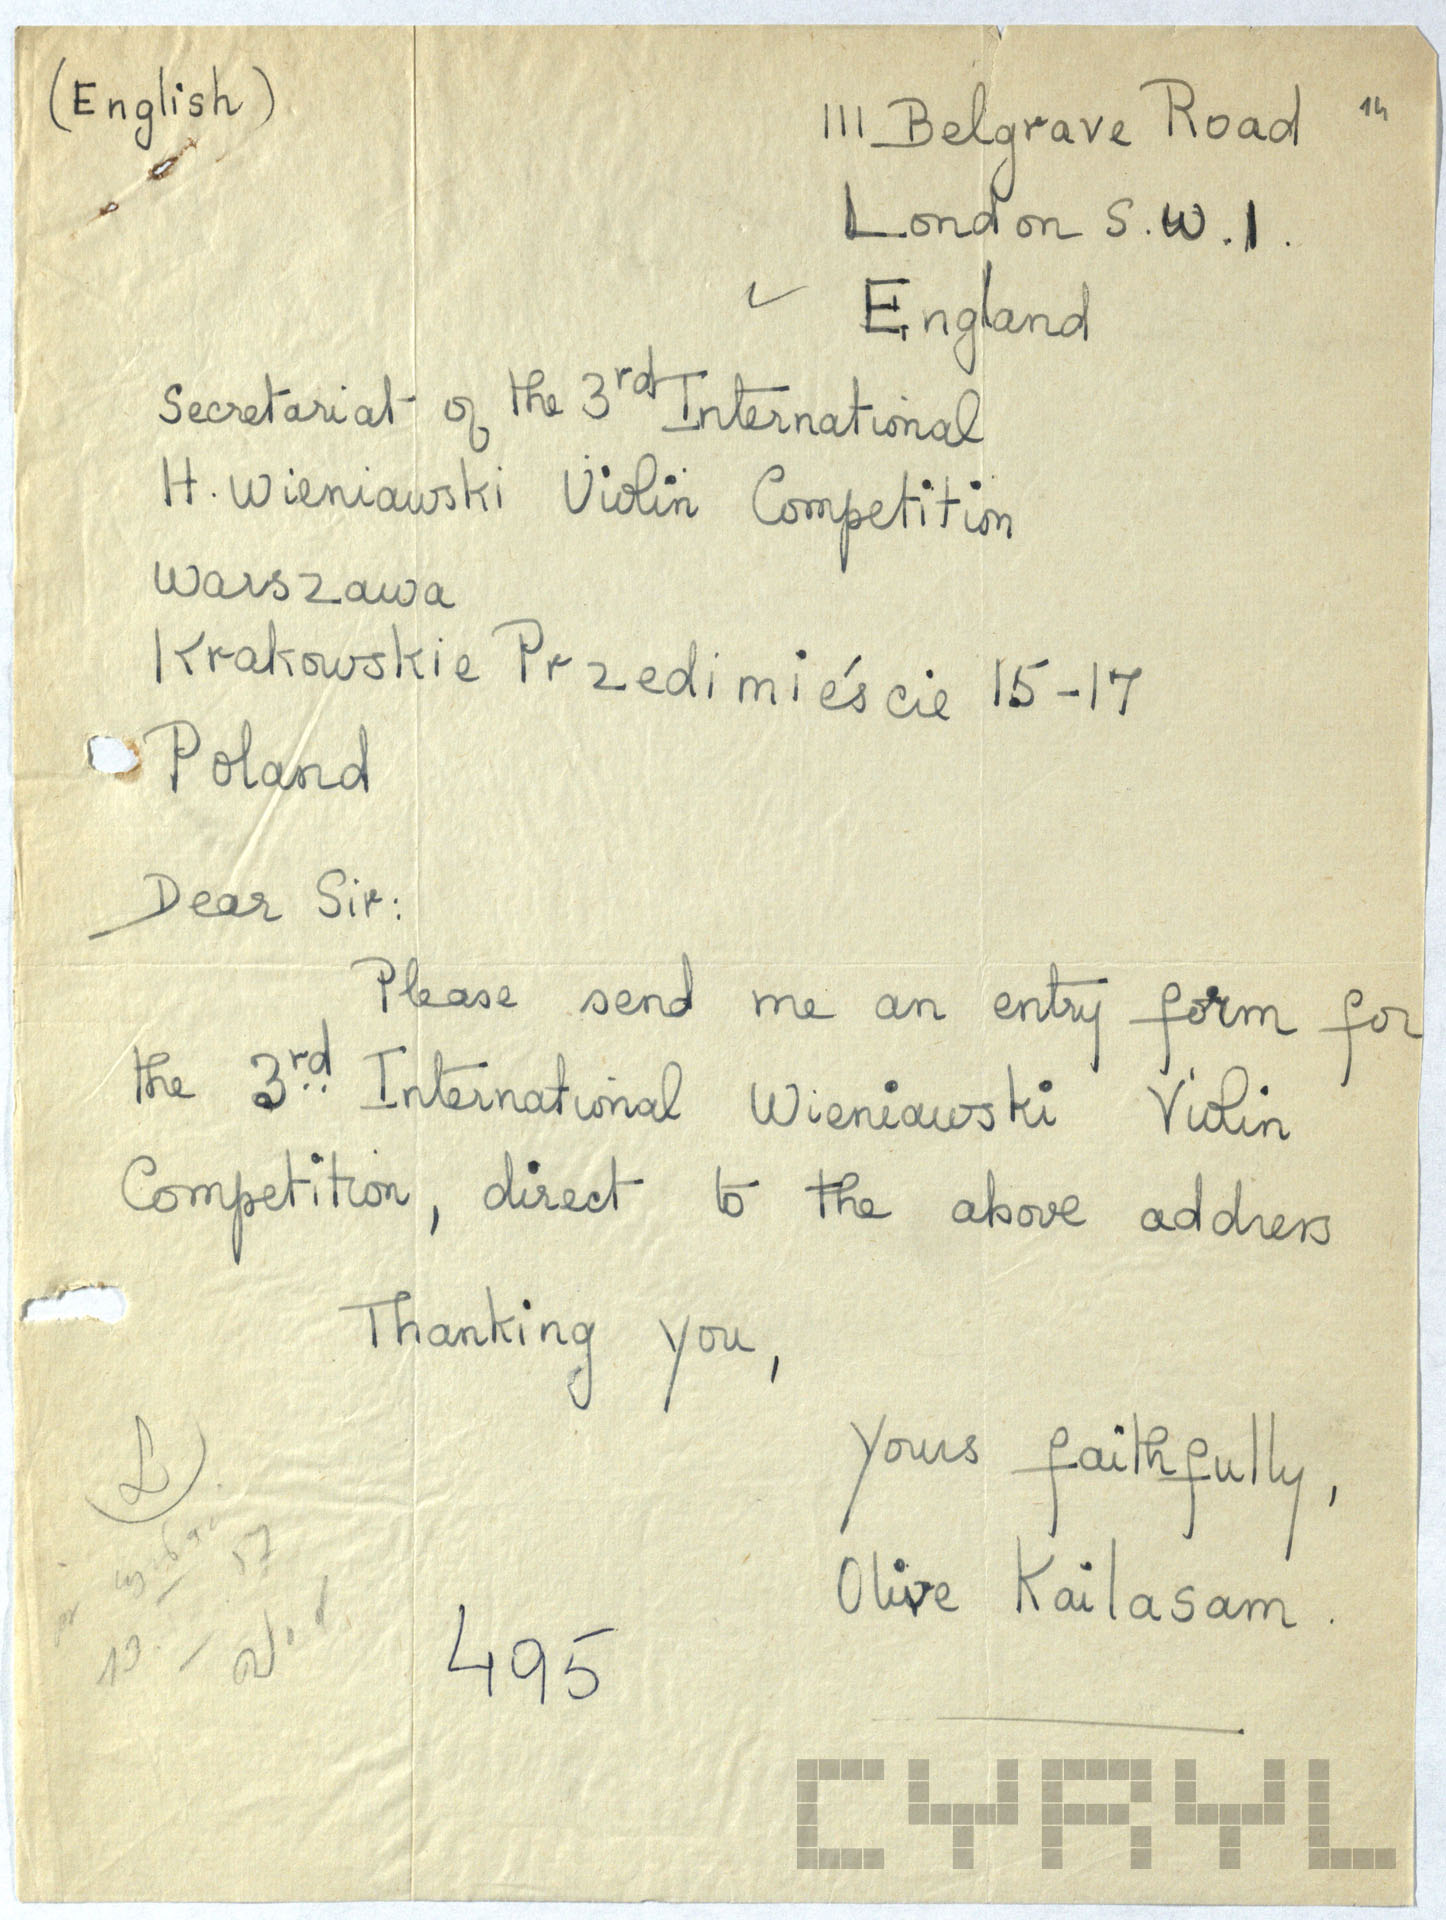 (English)
111 Belgrave Road
14
London S.W.1.
England
Secretariat of the 3rd International
H. Wieniawski Violin Competition
Warszawa
Krakowskie Przedimieście 15-17
Poland
Dear Sir:
Please send me an entry form for
the 3rd International Wieniawski Violin
Competition, direct to the above address
Thanking you,
Yours faithfully,
Olive Kailasam.
57
13.
495
CYRYL